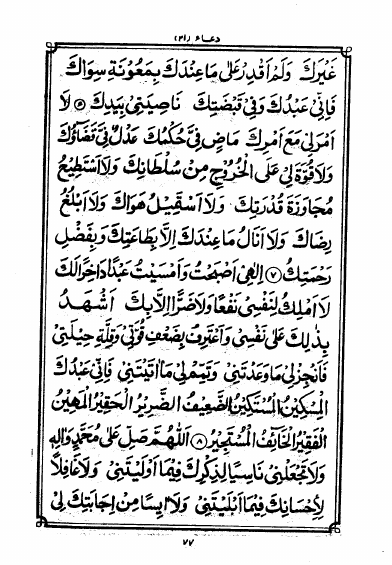 دعاء (۲۱)
غَيْرَكَ وَلَمْ اَقْدِرْ عَلٰى مَا عِنْدَكَ بِمَعُوْنَةِ سِوَاكَ
فَاِنِّىْ عَبْدُكَ وَفِىْ قَبْضَتِكَ نَاصِيَتِىْ بِيَدِكَ ۝ لَا
اَمْرَ لِىْ مَعَ اَمْرِكَ مَاضٍ فِىَّ حُكْمُكَ عَدْلٌ فِىَّ قَضَاؤُكَ
وَلَا قُوَّةَ لِىْ عَلَى الْخُرُوْجِ مِنْ سُلْطَانِكَ وَلَا اَسْتَطِيْعُ
مُجَاوَزَةَ قُدْرَتِكَ وَلَا اَسْتَمِيْلُ هَوَاكَ وَلَا اَبْلُغُ
رِضَاكَ وَلَا اَنَالُ مَا عِنْدَكَ اِلَّا بِطَاعَتِكَ وَبِفَضْلِ
رَحْمَتِكَ ۷ اِلٰهِىْ اَصْبَحْتُ وَاَمْسَيْتُ عَبْدًا دَاخِرًا لَكَ
لَا اَمْلِكُ لِنَفْسِىْ نَفْعًا وَلَا ضَرًّا اِلَّا بِكَ اَشْهَدُ
بِذٰلِكَ عَلٰى نَفْسِىْ وَاَعْتَرِفُ بِضَعْفِ قُوَّتِىْ وَقِلَّةِ حِيْلَتِىْ
فَاَنْجِزْ لِىْ مَا وَعَدْتَنِىْ وَتَمِّمْ لِىْ مَا اٰتَيْتَنِىْ فَاِنِّىْ عَبْدُكَ
الْمِسْكِيْنُ الْمُسْتَكِيْنُ الضَّعِيْفُ الضَّرِيْرُ الْحَقِيْرُ الْمَهِيْنُ
الْفَقِيْرُ الْخَائِفُ الْمُسْتَجِيْرُ ۸ اَللّٰهُمَّ صَلِّ عَلٰى مُحَمَّدٍ وَاٰلِهٖ
وَلَا تَجْعَلْنِىْ نَاسِيًا لِذِكْرِكَ فِيْمَا اَوْلَيْتَنِىْ وَلَا غَافِلًا
لِاِحْسَانِكَ فِيْمَا اَبْلَيْتَنِىْ وَلَا اٰيِسًا مِنْ اِجَابَتِكَ لِىْ
۷۷